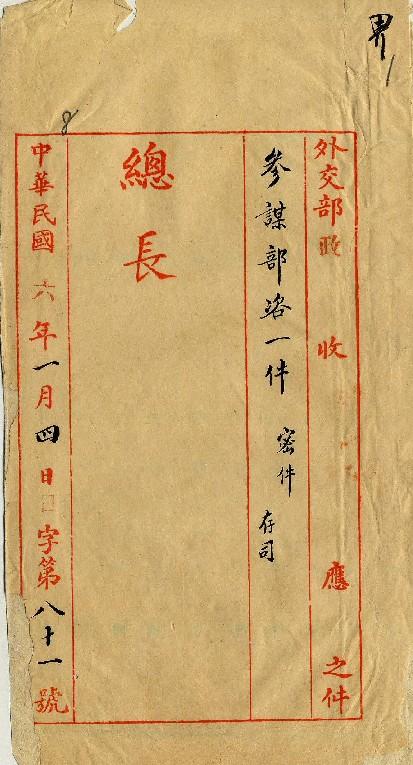 界
1
8
外交部政收應之件
參謀部咨一件 密件 存司
總長
中華民國六年一月四日 字第八十一號